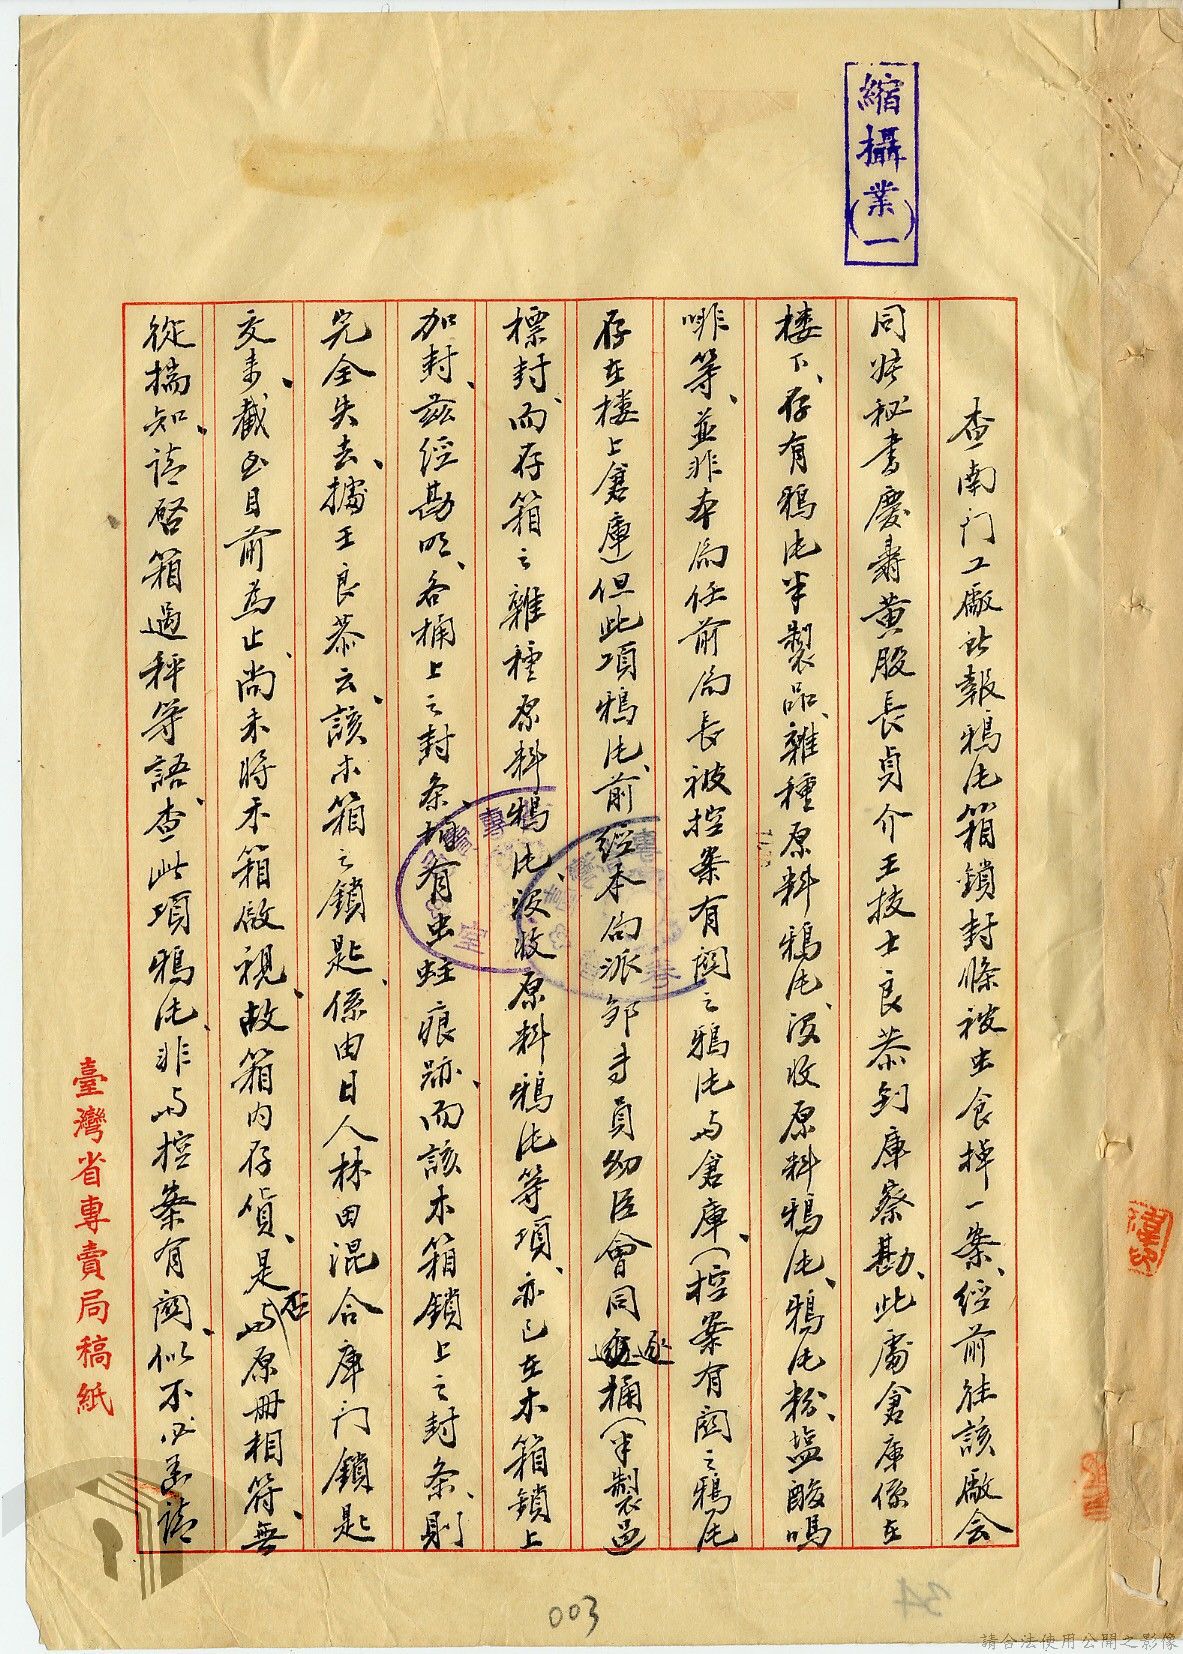 縮攝業(一)
查南门工廠呈報鴉片箱鎖封條被虫食掉一案、経前往該廠会
同施秘書慶壽黃股長貞介王技士良恭到庫察勘、此處倉庫係在
楼下、存有鴉片半製品、雜種原料鴉片、沒收原料鴉片、鴉片粉、塩酸嗎
啡等、並非本局任前局長被控案有関之鴉片与倉庫、(控案有関之鴉片
存在楼上倉庫)但此項鴉片、前経本局派邹專員幼臣會同逐桶(半製品)
標封、而存箱之雜種原料鴉片、沒收原料鴉片等項、亦已在木箱鎖上
加封、茲经勘明、各桶上之封条、均有虫蛀痕跡、而該木箱鎖上之封条、則
完全失去、據王良恭云、該木箱之鎖匙、係由日人林田混合庫门鎖匙
交来、截至目前為止、尚未將木箱啟視、故箱内存貨、是否与原冊相符、無
從揣知、請啓箱過秤等語、查此項鴉片、非与控案有関、似不必函請
臺灣省專賣局稿紙
003
34
請合法使用公開之影像